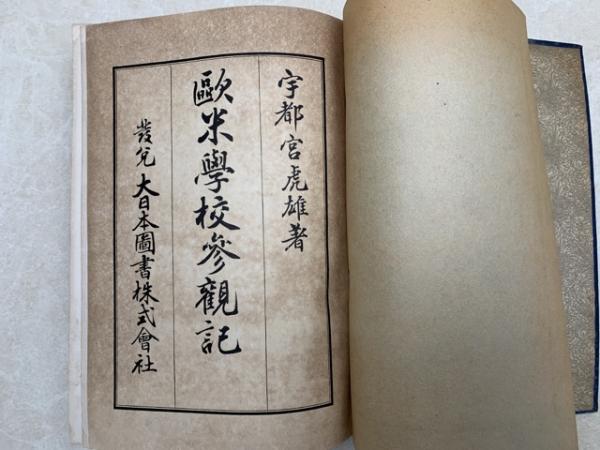 宇都宮虎雄著
歐米學校參觀記
發兌 大日本圖書株式會社